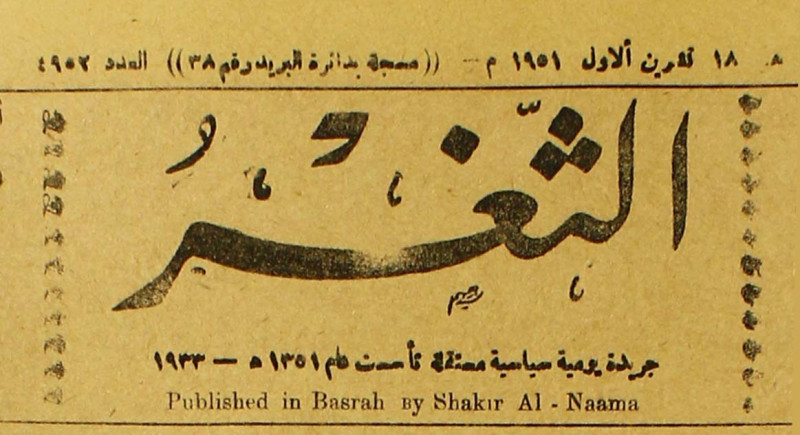 ١٨ تشرين ألاول ١٩٥١ م — ((مسجلة بدائرة البريد رقم ٣٨)) العدد ٤٩٥٢
الثَّغْرُ
جريدة يومية سياسية مستقلة تأسست عام ١٣٥١ ه — ١٩٣٣
Published in Basrah By Shakir Al - Naama